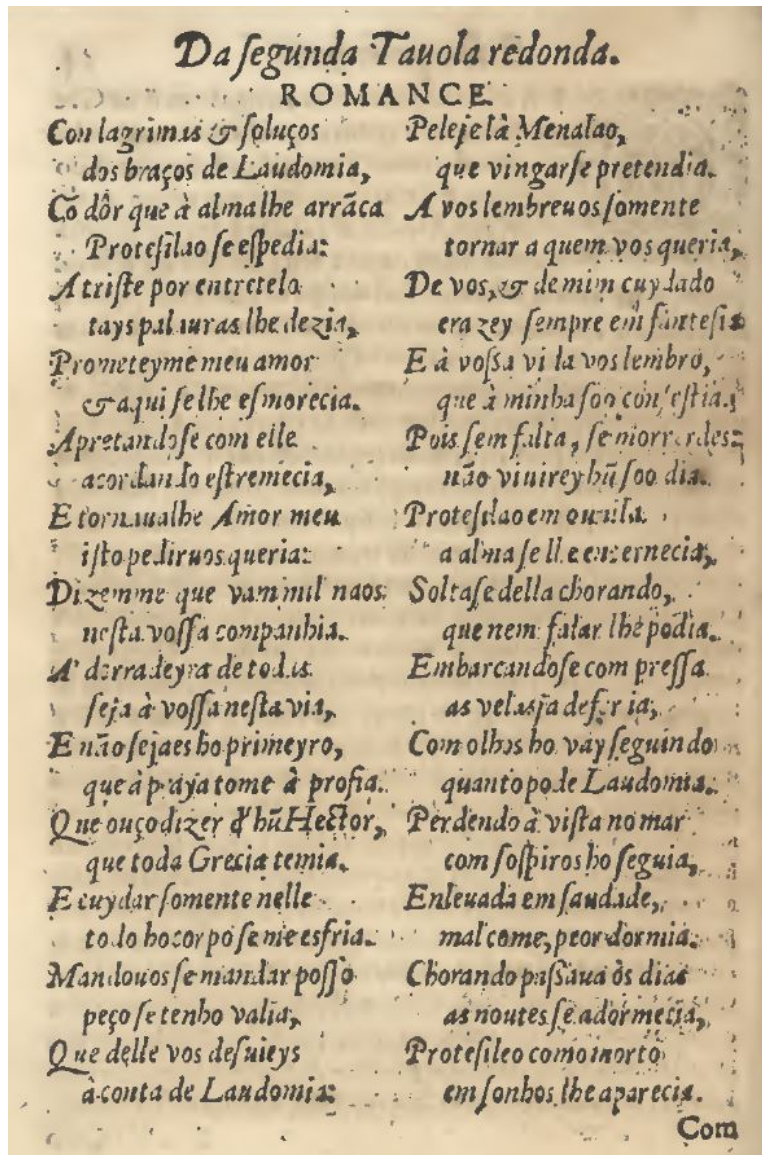 Da ſegunda Tauola redonda.
ROMANCE
Con lagrimas & ſoluços
dos braços de Laudomia,
Cõ dôr que à alma lhe arrãca
Proteſilao ſe eſpedia:
A triſte por entretela
tays palauras lhe dezia,
Prometeyme meu amor
& aqui ſe lhe eſmorecia.
Apretandoſe com elle
acordando eſtremecia,
E tornaualhe Amor meu
iſto pediruos queria:
Dizemme que vam mil naos
neſta voſſa companhia.
A' derradeyra de todas
ſeja à voſſa neſta via,
E não ſejaes ho primeyro,
que à praya tome à profia.
Que ouço dizer q̃ hũ Hector,
que toda Grecia temia.
E cuydar ſomente nelle
todo ho corpo ſe me esfria.
Mandouos ſe mandar poſſo
peço ſe tenho valia,
Que delle vos deſuieys
à conta de Laudomia:
Peleje là Menalao,
que vingarſe pretendia.
A vos lembreuos ſomente
tornar a quem vos queria,
De vos, & de mim cuydado
erazey ſempre em fanteſia
E à voſſa vida vos lembro,
que à minha ſoo conſeſtia.
Pois ſem falta, ſe morrerdes:
não viuirey hũ ſoo dia.
Proteſilao em ouuila
a alma ſe lhe enternecia,
Soltaſe della chorando,
que nem falar lhe podia.
Embarcandoſe com preſſa
as velas ja deferia,
Com olhos ho vay ſeguindo
quanto pode Laudomia.
Perdendo à viſta no mar
com ſoſpiros ho ſeguia,
Enleuada em ſaudade,
mal come, peor dormia.
Chorando paſſaua òs dias
as noutes ſe adormecia,
Proteſileo como morto
em ſonhos lhe aparecia.
Com